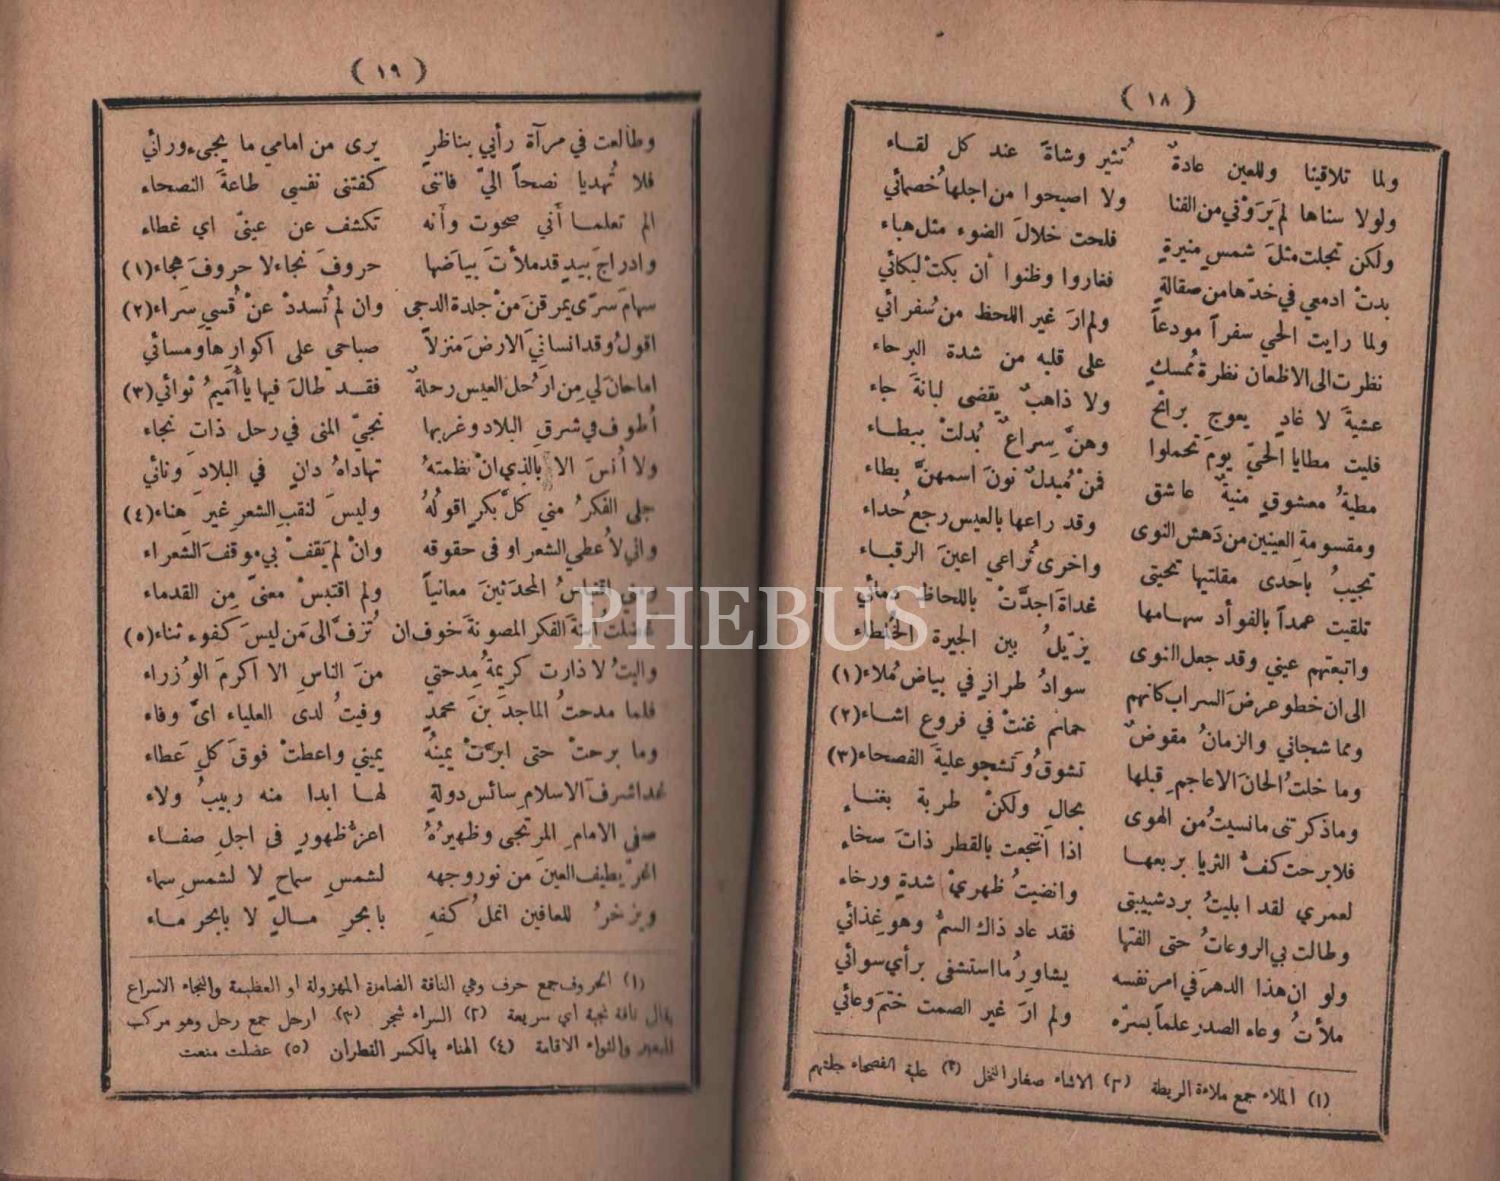 ( ١٨ )
ولما تلاقينا وللعين عادةٌ تُثير وشاةً عند كل لقاء
ولولا سناها لم يَرَوْني من الفنا ولا اصبحوا من اجلها خُصمائي
ولكن تجلت مثلَ شمسٍ منيرةٍ فلحت خلالَ الضوء مثل هباء
بدتْ ادمعي في خدّها من صقالةٍ فغاروا وظنوا أن بكتْ لبكائي
ولما رايت الحي سفراً مودعاً ولم ارَ غير اللحظ من سُفرائي
نظرت الى الاظعان نظرة مُمسكٍ على قلبه من شدة البرحاء
عشيةَ لا غادٍ يعوج برائح ولا ذاهبٌ يقضى لبانةَ جاء
فليت مطايا الحيّ يومَ تحملوا وهنَّ سِراعٌ بُدلتْ ببطاء
مطيةُ معشوقٍ منيةُ عاشق فمنْ مُبدلٌ نونَ اسمهنَّ بطاء
ومقسومةِ العينين من دَهش النوى وقد راعها بالعيس رجع حُداء
تجيبُ باحدى مقلتيها تحيتى واخرى تُراعي اعينَ الرقباء
تلقيت عمداً بالفوأد سهامها غداةَ اجدَّتْ باللحاظ رمائي
واتبعتهم عيني وقد جعل النوى يزّيلُ بين الجيرة الخُلطاء
الى ان خطو عرضَ السراب كانهم سوادُ طرازٍ في بياض مُلاء (١)
ومما شجاني والزمانُ مقوضٌ حمائم غنتْ في فروع اشاء (٢)
وما خلتُ الحانَ الاعاجمِ قبلها تشوقُ وتَشجو عليةَ الفصحاء (٣)
وما ذكرتنى ما نسيتُ من الهوى بحالٍ ولكنْ طربة بغناءِ
فلا برحت كفُّ الثريا بربعهـا اذا انتجعت بالقطر ذاتَ سخاءِ
لعمري لقد ابليتُ بردشبيبتى وانضيتُ ظهريْ شدةٍ ورخاء
وطالت بي الروعاتُ حتى الفتها فقد عاد ذاك السمُّ وهو غِذائي
ولو ان هذا الدهرَ في امر نفسه يشاورُ ما استشفى برأي سوائي
ملأتُ وعاء الصدر علماً بسرّه ولم ارَ غير الصمت ختمَ وعائي
(١) الملاء جمع ملاءة الريطة (٢) الاشاء صغار النخل (٣) علية الفصحاء جلتهم
( ١٩ )
وطالعت في مرآة رأيي بناظرٍ يرى من امامي ما يجيء ورائي
فلا تُهديا نصحاً اليّ فانتى كفتنى نفسي طاعةَ النصحاء
الم تعلمـا أَني صحوت وأَنه تكشف عن عينيّ اي غطاء
وادراجَ بيدٍ قد ملأتَ بياضها حروفَ نجاء لا حروفَ هجاء (١)
سهامَ سرًى يمرقنَ منْ جلدة الدجى وان لم تُسددْ عنْ قُسي سراء (٢)
اقولُ وقد انسانيَ الارضَ منزلاً صباحي على اكوارها ومسائي
اما حانَ لي مِن ارحُل العيس رحلةٌ فقـد طالَ فيها يا أُميمُ ثوائي (٣)
أطوف في شرقِ البلاد وغربها نجيّ المنى في رحل ذات نجاء
ولا أُنسَ الا بالذي انْ نظمتهُ تهاداهُ دانٍ في البلادَ ونائي
جلى الفكرُ مني كلَّ بكرٍ اقولهُ وليسَ لنقبِ الشعرِ غير هِناء (٤)
واني لاُعطي الشعر اوفى حقوقه وانْ لم يَقفْ بي موقفَ الشعراء
اقتباسُ المحدَثينَ معانياً ولم اقتبسْ معنىً مِن القدماء
عضلت ابنةَ الفكر المصونةَ خوف ان تُزفَّ الى مَن ليسَ كفوء ثناء (٥)
واليتُ لا ذارت كريمةُ مِدحتي منَ الناسِ الا اكرمَ الوُزراء
فلما مدحتُ الماجدَ بنَ محمدٍ وفيتُ لدى العلياء ايَّ وفاء
وما برحتْ حتى ابرَّتْ يمينُهُ يميني واعطتْ فوقَ كلِ عَطاء
غدا شرف الاسلام سائس دولةٍ لهـا ابدا منه ربيبُ ولاء
صفي الامامِ المرتجى وظهيرُهُ اعزُّ ظهورٍ فى اجلِ صفـاء
اغرّ يطيف العينَ من نور وجهه لشمسِ سماحٍ لا لشمسِ سماء
ويزخرُ للعافين انملُ كفهِ بابحرِ مـالٍ لا بابحر مـاء
(١) الحروف جمع حرف وهي الناقة الضامزة المهزولة او العظيمة والنجاء الاسراع
يقال ناقة نجية اي سريعة (٢) السراء شجر (٣) ارحل جمع رحل وهو مركب
للبعير والثواء الاقامة (٤) الهناء بالكسر القطران (٥) عضلت منعت
PHEBUS